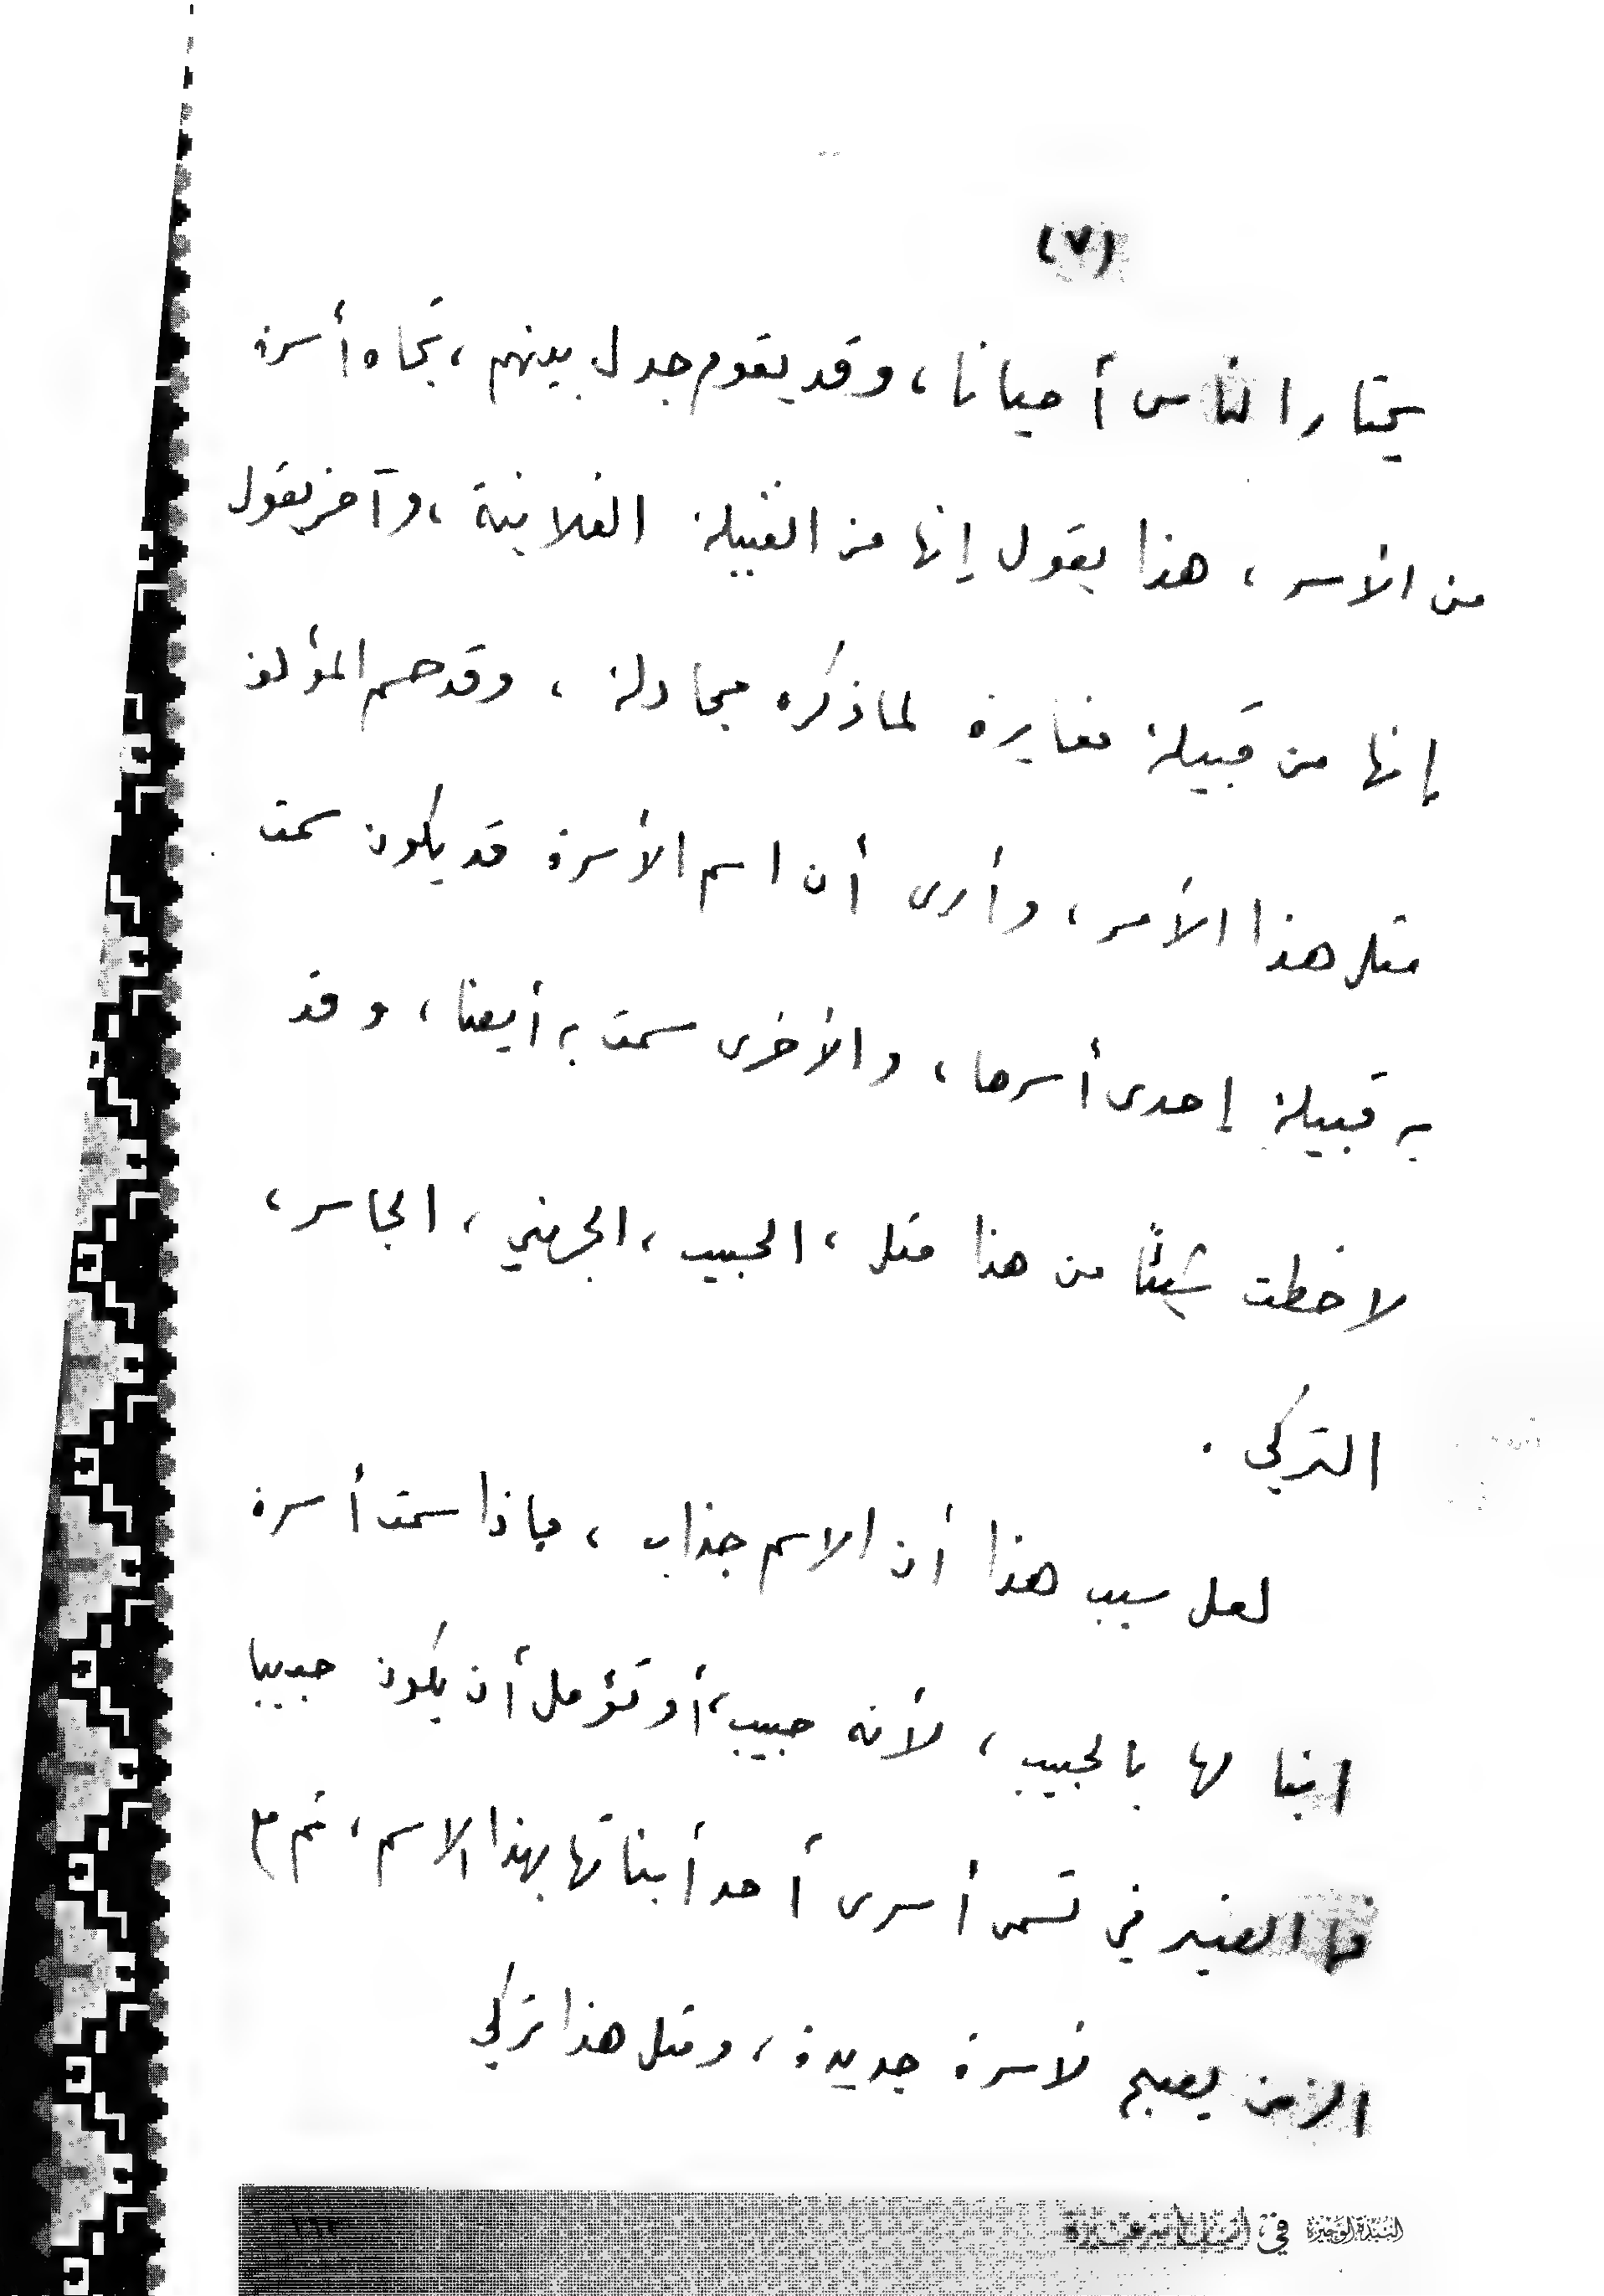 (٧)
يحتار الناس أحيانا، وقد يقوم جدل بينهم، تجاه أسرة
من الأسر، هذا يقول إنها من القبيلة الفلانية، وآخر يقول
إنها من قبيلة مغايرة لما ذكره مجادلة، وقد حسم المؤلف
مثل هذا الأمر، وأرى أن اسم الأسرة قد يكون سمت
به قبيلة إحدى أسرها، والأخرى سمت به أيضا، وقد
لاحظت شيئًا من هذا مثل، الحبيب، الجهني، الجاسر،
التركي.
لعل سبب هذا أن الاسم جذاب، فإذا سمت أسرة
ابنا لها بالحبيب، لأنه حبيب، أو تؤمل أن يكون حبيبا
فما الضير في تسمى أسرى أحد أبنائها بهذا الاسم، ثم مع
الزمن يصبح لأسرة جديدة، ومثل هذا تركي
النبذة الوجيزة في أنساب أسر عنيزة